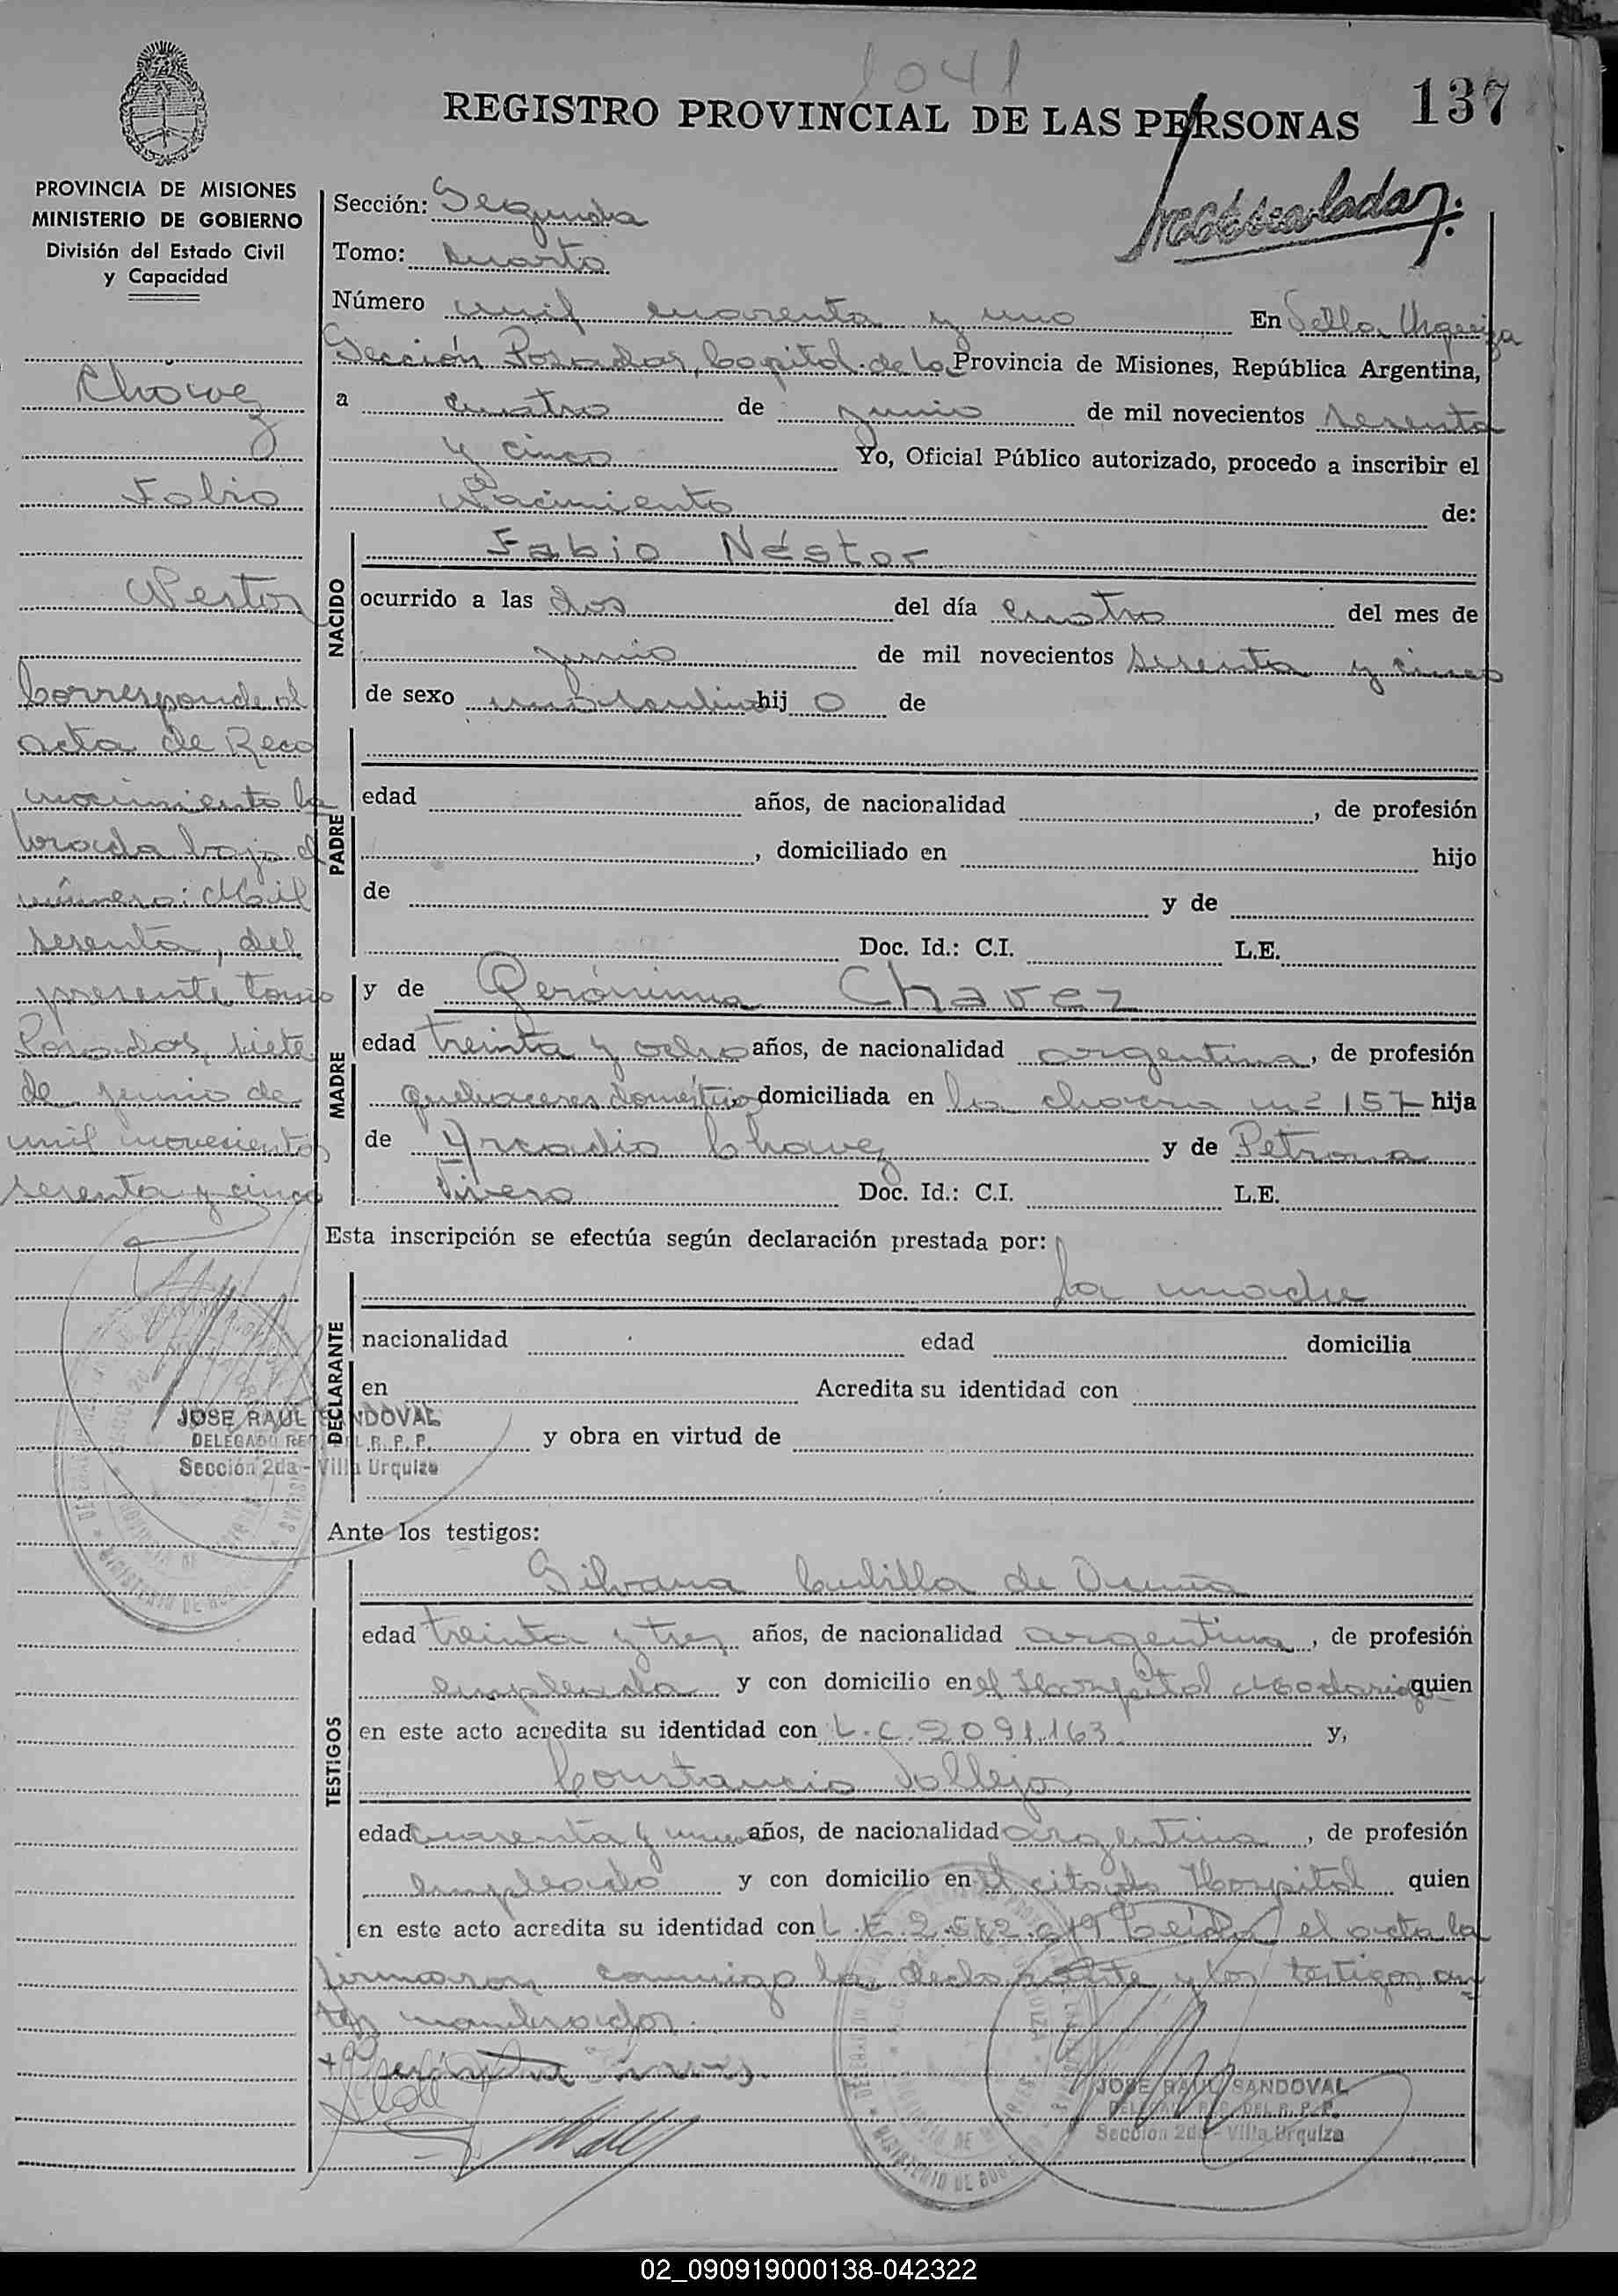 1041
REGISTRO PROVINCIAL DE LAS PERSONAS
137
PROVINCIA DE MISIONES
MINISTERIO DE GOBIERNO
División del Estado Civil
y Capacidad
Chavez
Fabio
Nestor
Corresponde al
acta de Reco
nocimiento la
brada bajo el
número: Mil
sesenta, del
presente tomo
Posadas, siete
de junio de
mil novecientos
sesenta y cinco
JOSE RAUL SANDOVAL
DELEGADO REG. DEL R. P. P.
Sección 2da - Villa Urquiza
Sección: Segunda
Tomo: Cuarto
Número mil cuarenta y uno En Villa Urquiza
Sección Posadas, Capital de la Provincia de Misiones, República Argentina,
a cuatro de junio de mil novecientos sesenta
y cinco Yo, Oficial Público autorizado, procedo a inscribir el
Nacimiento de:
NACIDO
Fabio Néstor
ocurrido a las dos del día cuatro del mes de
junio de mil novecientos sesenta y cinco
de sexo masculino hij o de
PADRE
edad años, de nacionalidad , de profesión
, domiciliado en hijo
de y de
Doc. Id.: C.I. L.E.
MADRE
y de Gerónima Chavez
edad treinta y ocho años, de nacionalidad argentina, de profesión
quehaceres domésticos domiciliada en la chacra nº 157 hija
de Arcadio Chavez y de Petrona
Doc. Id.: C.I. L.E.
Esta inscripción se efectúa según declaración prestada por:
DECLARANTE
la madre
nacionalidad edad domicilia
en Acredita su identidad con
y obra en virtud de
Ante los testigos:
TESTIGOS
Silvana de
edad treinta y tres años, de nacionalidad argentina, de profesión
empleada y con domicilio en el Hospital Madariaga quien
en este acto acredita su identidad con L.C. 2.091.163 y,
Constancio Vallejos
edad cuarenta y años, de nacionalidad argentina, de profesión
empleado y con domicilio en el citado Hospital quien
en este acto acredita su identidad con L.E. Leida el acta la
firmaron conmigo la declarante y los testigos an
tes nombrados.
JOSE RAUL SANDOVAL
DELEGADO REG. DEL R. P. P.
Sección 2da - Villa Urquiza
02_090919000138-042322